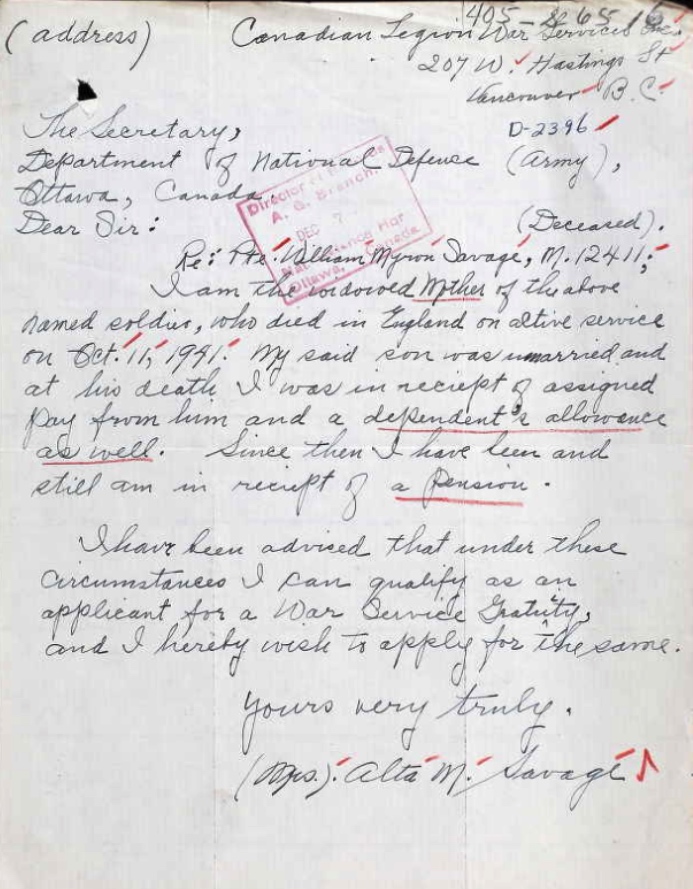 405-S-65,16
(address) Canadian Legion War Services Inc.
207 W. Hastings St
Vancouver B.C.
D-2396
The Secretary,
Department of National Defense (Army),
Ottawa, Canada
Director of Estates
A. G. Branch.
DEC 7
Ottawa, Canada
Dear Sir: (Deceased).
Re: Pte. William Myron Savage, M. 12411;
I am the widowed Mother of the above
named soldier, who died in England on active service
on Oct. 11, 1941. My said son was unmarried and
at his death I was in reciept of assigned
pay from him and a dependent's allowance
as well. Since then I have been and
still am in reciept of a Pension.
I have been advised that under these
circumstances I can qualify as an
applicant for a War Service Gratuity,
and I hereby wish to apply for the same.
Yours very truly.
(Mrs.). Alta M. Savage